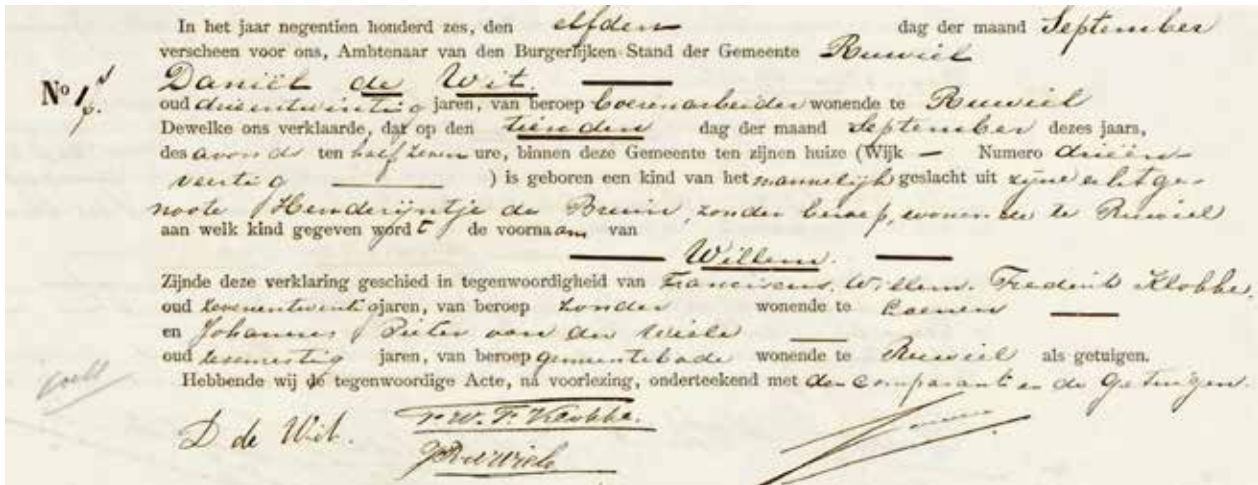 In het jaar negentien honderd zes, den elfden dag der maand September
verscheen voor ons, Ambtenaar van den Burgerlijken Stand der Gemeente Ruwiel
No 1
Daniël de Wit
oud drieentwintig jaren, van beroep boerenarbeider wonende te Ruwiel
Dewelke ons verklaarde, dat op den tienden dag der maand September dezes jaars,
des avonds ten half zeven ure, binnen deze Gemeente ten zijnen huize (Wijk — Numero drieën
veertig ) is geboren een kind van het mannelijk geslacht uit zijne echtge-
noote Henderijntje de Bruin, zonder beroep, wonende te Ruwiel
aan welk kind gegeven wordt de voornaam van
Willem.
Zijnde deze verklaring geschied in tegenwoordigheid van Franciscus Willem Frederik Klobbe,
oud jaren, van beroep zonder wonende te Loenen
en Johannes Pieter van der Wiele
oud jaren, van beroep gemeentebode wonende te Ruwiel als getuigen.
Hebbende wij de tegenwoordige Acte, na voorlezing, onderteekend met den comparant en de getuigen.
D de Wit. F. W. F. Klobbe.